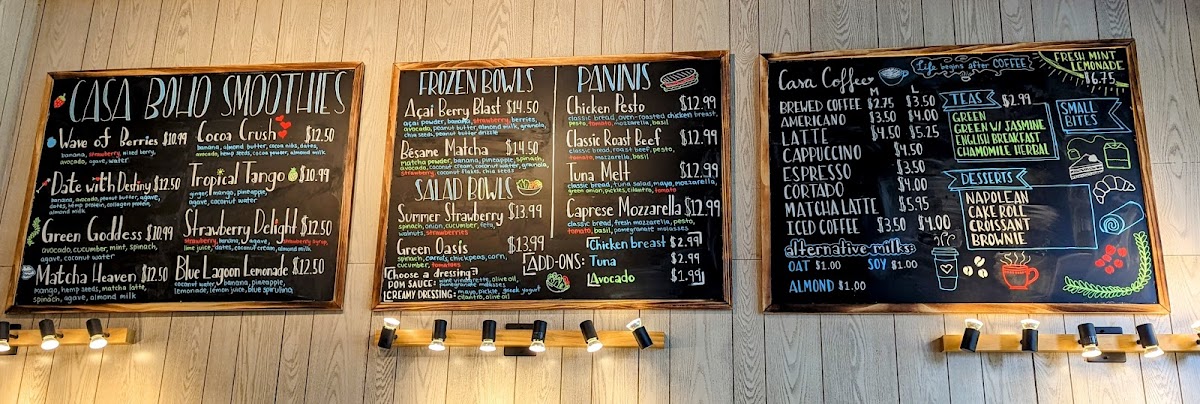 CASA BOHO SMOOTHIES
Wave of Berries $10.99
banana, strawberry, mixed berry,
avocado, agave, water
Date with Destiny $12.50
banana, avocado, peanut butter, agave,
dates, hemp protein, collagen protein,
almond milk
Green Goddess $10.99
avocado, cucumber, mint, spinach,
agave, coconut water
Matcha Heaven $12.50
mango, hemp seeds, matcha latte,
spinach, agave, almond milk
Cocoa Crush $12.50
banana, almond butter, cocoa nibs, dates,
avocado, hemp seeds, cocoa powder, almond milk
Tropical Tango $10.99
ginger, mango, pineapple,
agave, coconut water
Strawberry Delight $12.50
strawberry, banana, agave, strawberry syrup,
lime juice, dates, coconut cream, almond milk
Blue Lagoon Lemonade $12.50
coconut water, banana, pineapple,
lemonade, lemon juice, blue spirulina
FROZEN BOWLS
Açai Berry Blast $14.50
açai powder, banana, strawberry, berries,
avocado, peanut butter, almond milk, granola,
chia seeds, peanut butter drizzle
Bésame Matcha $14.50
matcha powder, banana, pineapple, spinach,
avocado, coconut cream, coconut water, granola,
strawberry, coconut flakes, chia seeds
SALAD BOWLS
Summer Strawberry $13.99
spinach, onion, cucumber, feta,
walnuts, strawberries
Green Oasis $13.99
spinach, carrots, chickpeas, corn,
cucumber, tomatoes
Choose a dressing
POM SAUCE: vinaigrette, olive oil,
pomegranate molasses
CREAMY DRESSING: mayo, pickle, greek yogurt
cilantro, olive oil
PANINIS
Chicken Pesto $12.99
classic bread, oven-roasted chicken breast,
pesto, tomato, mozzarella, basil
Classic Roast Beef $12.99
classic bread, roast beef, pesto,
tomato, mozzarella, basil
Tuna Melt $12.99
classic bread, tuna salad, mayo, mozzarella,
green onion, pickles, cilantro, tomato
Caprese Mozzarella $12.99
classic bread, fresh mozzarella, pesto,
tomato, basil, pomegranate molasses
ADD-ONS:
Chicken breast $2.99
Tuna $2.99
Avocado $1.99
Casa Coffee
Life begins after COFFEE
FRESH MINT
LEMONADE
$6.75
M L
BREWED COFFEE $2.75 $3.50
AMERICANO $3.50 $4.00
LATTE $4.50 $5.25
CAPPUCCINO $4.50
ESPRESSO $3.50
CORTADO $4.00
MATCHA LATTE $5.95
ICED COFFEE $3.50 $4.00
alternative milks:
OAT $1.00 SOY $1.00
ALMOND $1.00
TEAS $2.99
GREEN
GREEN W/ JASMINE
ENGLISH BREAKFAST
CHAMOMILE HERBAL
SMALL
BITES
DESSERTS
NAPOLEAN
CAKE ROLE
CROISSANT
BROWNIE